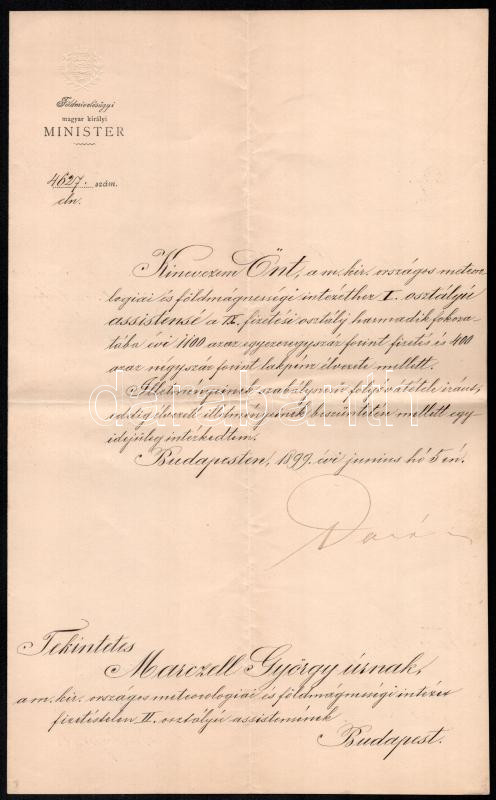 Földmivelésügyi
magyar királyi
MINISTER
4627. szám.
eln.
Kinevezem Önt, a m. kir. országos meteoro-
logiai és földmágnességi intézethez I. osztályú
assistenssé a IX. fizetési osztály harmadik fokoza-
tába évi 1100 azaz egyezeregyszáz forint fizetés és 400
azaz négyszáz forint lakpénz élvezete mellett.
Illetményeinek szabályszerű folyóvátétele iránt,
eddig élvezett illetményeinek beszüntetése mellett egy-
idejüleg intézkedtem.
Budapesten, 1899. évi junius hó 5 én.
Darányi
Tekintetes
Marczell György úrnak,
a m. kir. országos meteorologiai és földmágnességi intézet
fizetéstelen II. osztályú assistensének
Budapest.
darabanth.com